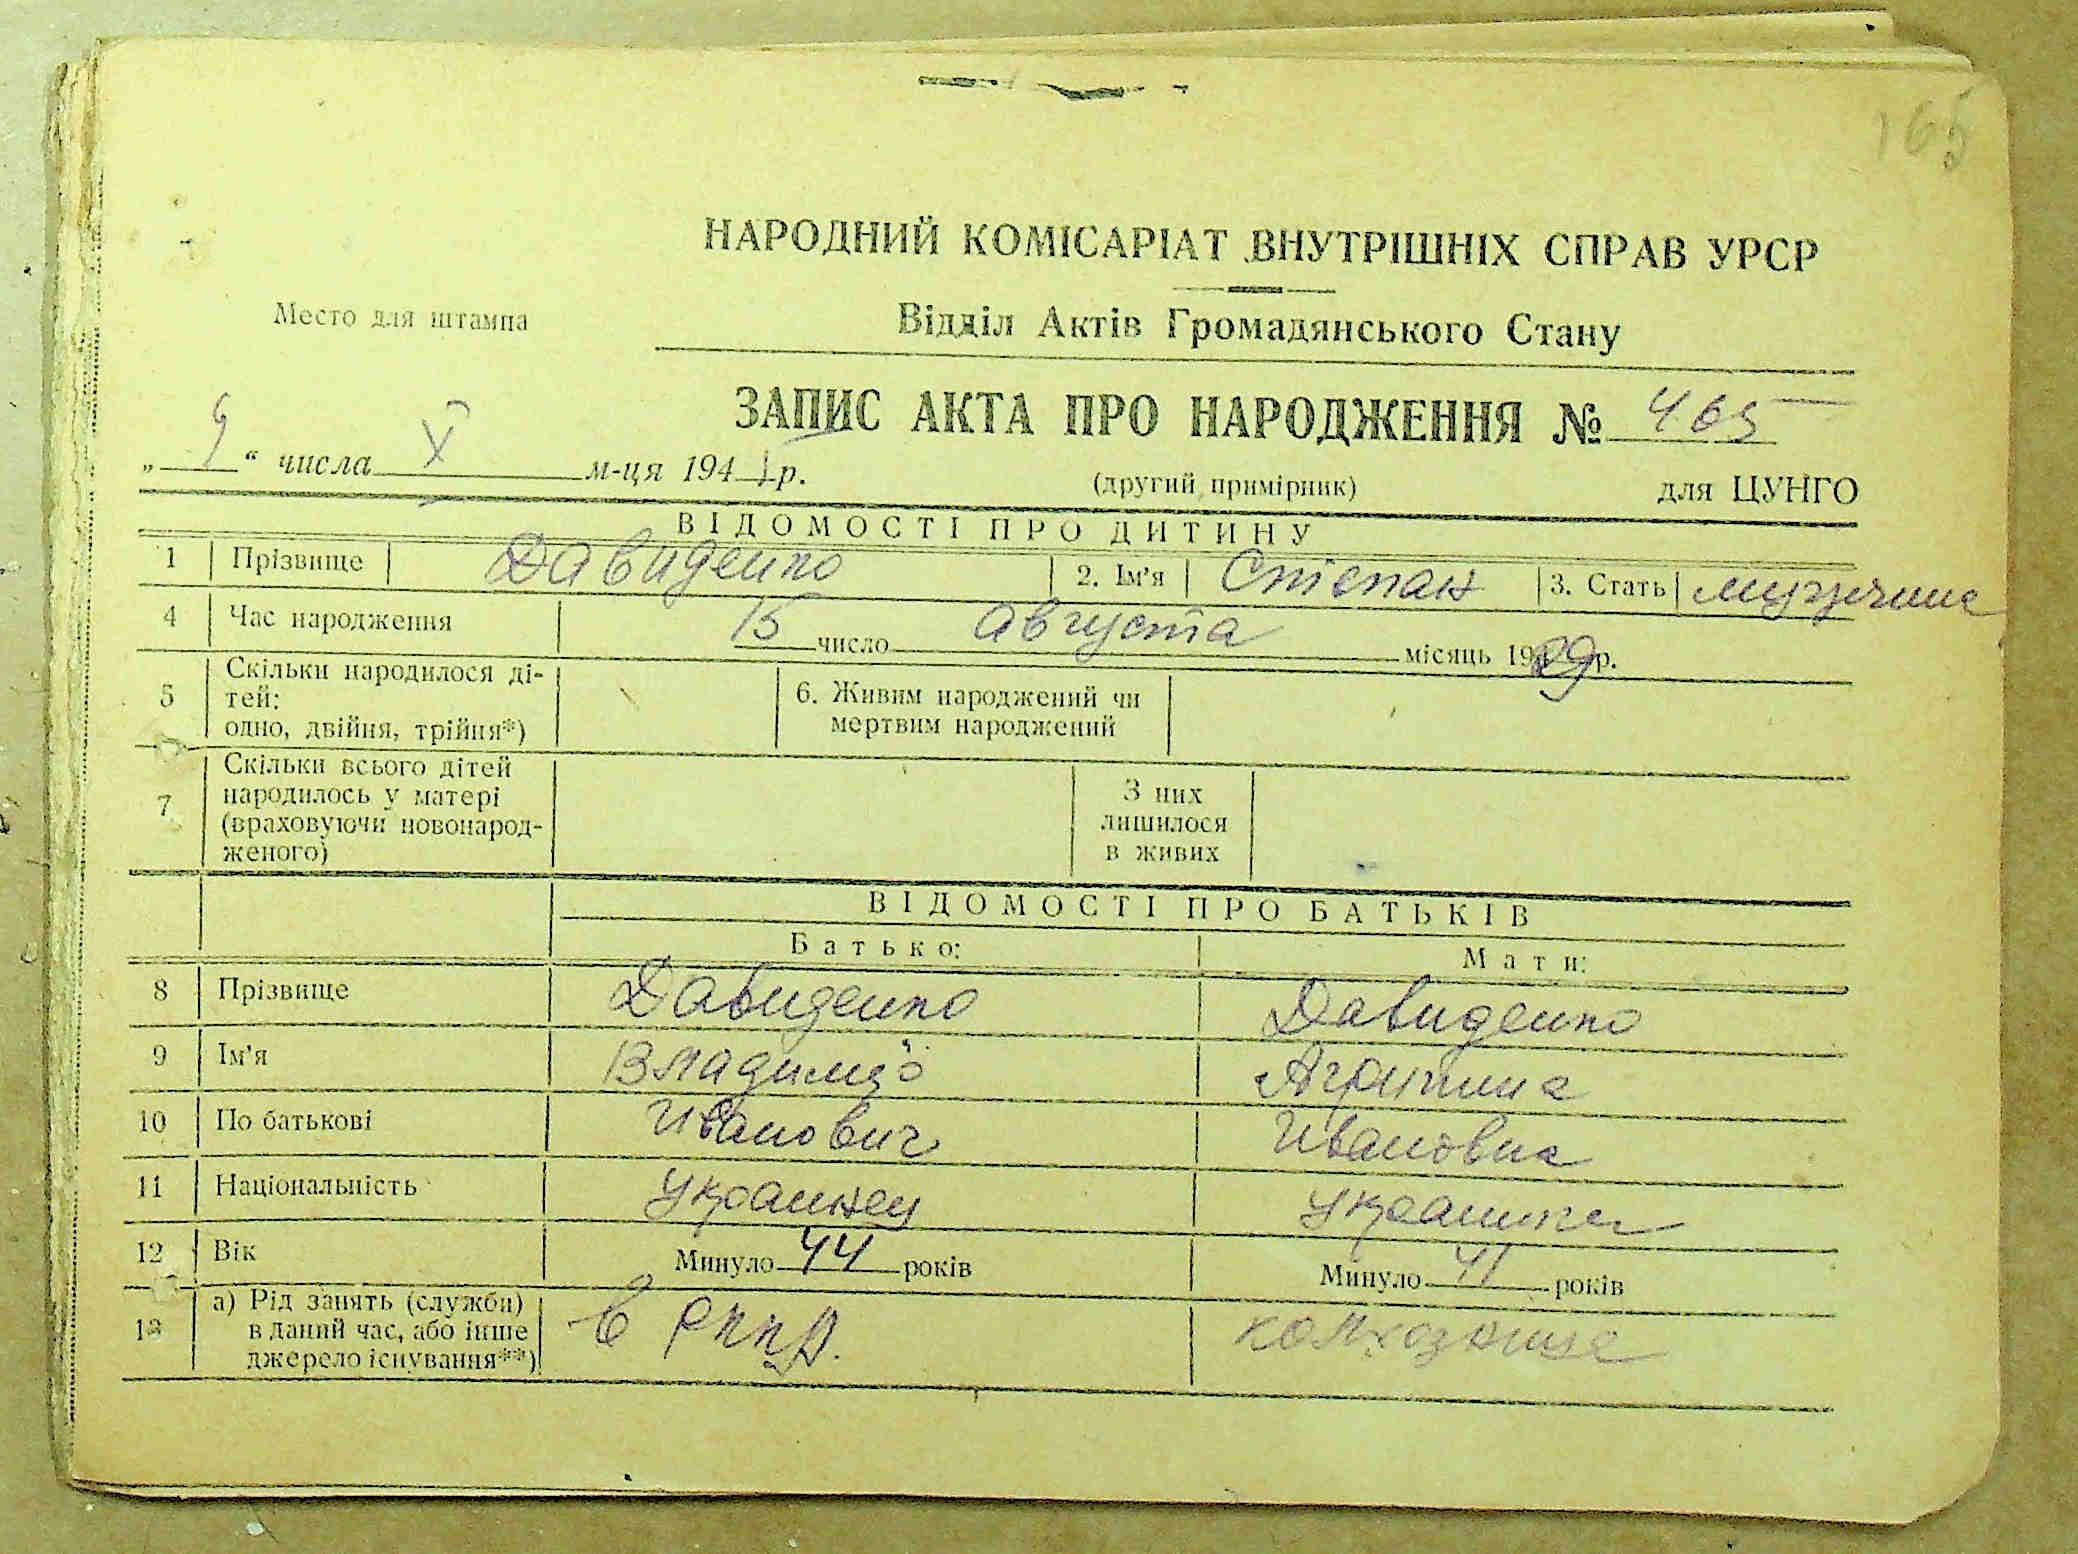 165
НАРОДНИЙ КОМІСАРІАТ ВНУТРІШНІХ СПРАВ УРСР
Место для штампа
Відділ Актів Громадянського Стану
ЗАПИС АКТА ПРО НАРОДЖЕННЯ № 465
„ 9 “ числа X м-ця 1941 р.
(другий примірник) для ЦУНГО
ВІДОМОСТІ ПРО ДИТИНУ
1 Прізвище Давиденко 2. Ім'я Стєпан 3. Стать мужчина
4 Час народження 15 число Августа місяць 1929 р.
5 Скільки народилося ді-
тей:
одно, двійня, трійня*)
6. Живим народжений чи
мертвим народжений
7 Скільки всього дітей
народилось у матері
(враховуючи новонарод-
женого)
З них
лишилося
в живих
ВІДОМОСТІ ПРО БАТЬКІВ
Батько: Мати:
8 Прізвище Давиденко Давиденко
9 Ім'я Владимир Агрипина
10 По батькові Иванович Ивановна
11 Національність Украинец Украинка
12 Вік Минуло 44 років Минуло 41 років
13 а) Рід занять (служби)
в даний час, або інше
джерело існування**)
в РККА. колхозница